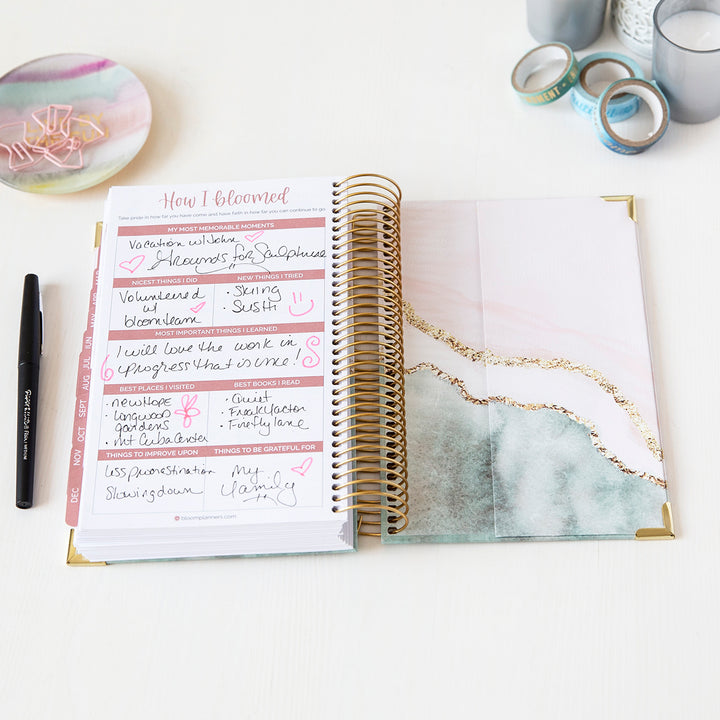 How I bloomed
Take pride in how far you have come and have faith in how far you can continue to go.
MY MOST MEMORABLE MOMENTS
Vacation w/ John
Grounds for Sculpture
NICEST THINGS I DID
Volunteered
w/
bloom team
NEW THINGS I TRIED
• Skiing
• Sushi
MOST IMPORTANT THINGS I LEARNED
I will love the work in
progress that is me!
BEST PLACES I VISITED
• new Hope
• Longwood
gardens
• Mt Cuba Center
BEST BOOKS I READ
• Quiet
• Freak Factor
• Firefly lane
THINGS TO IMPROVE UPON
less procrastination
Slowing down
THINGS TO BE GRATEFUL FOR
My
family
bloomplanners.com
APR
MAY
JUN
JUL
AUG
SEPT
OCT
NOV
DEC